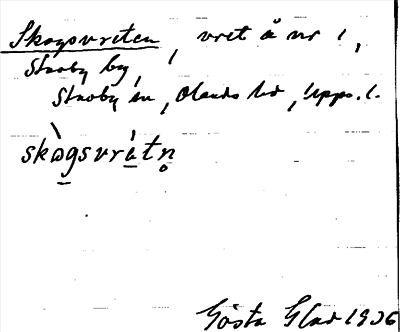 Skogsvreten, vret å nr 1,
Stavby by,
Stavby sn, Olands hd, Upps. l.
skògsvrètn̥
Gösta Glad 1936